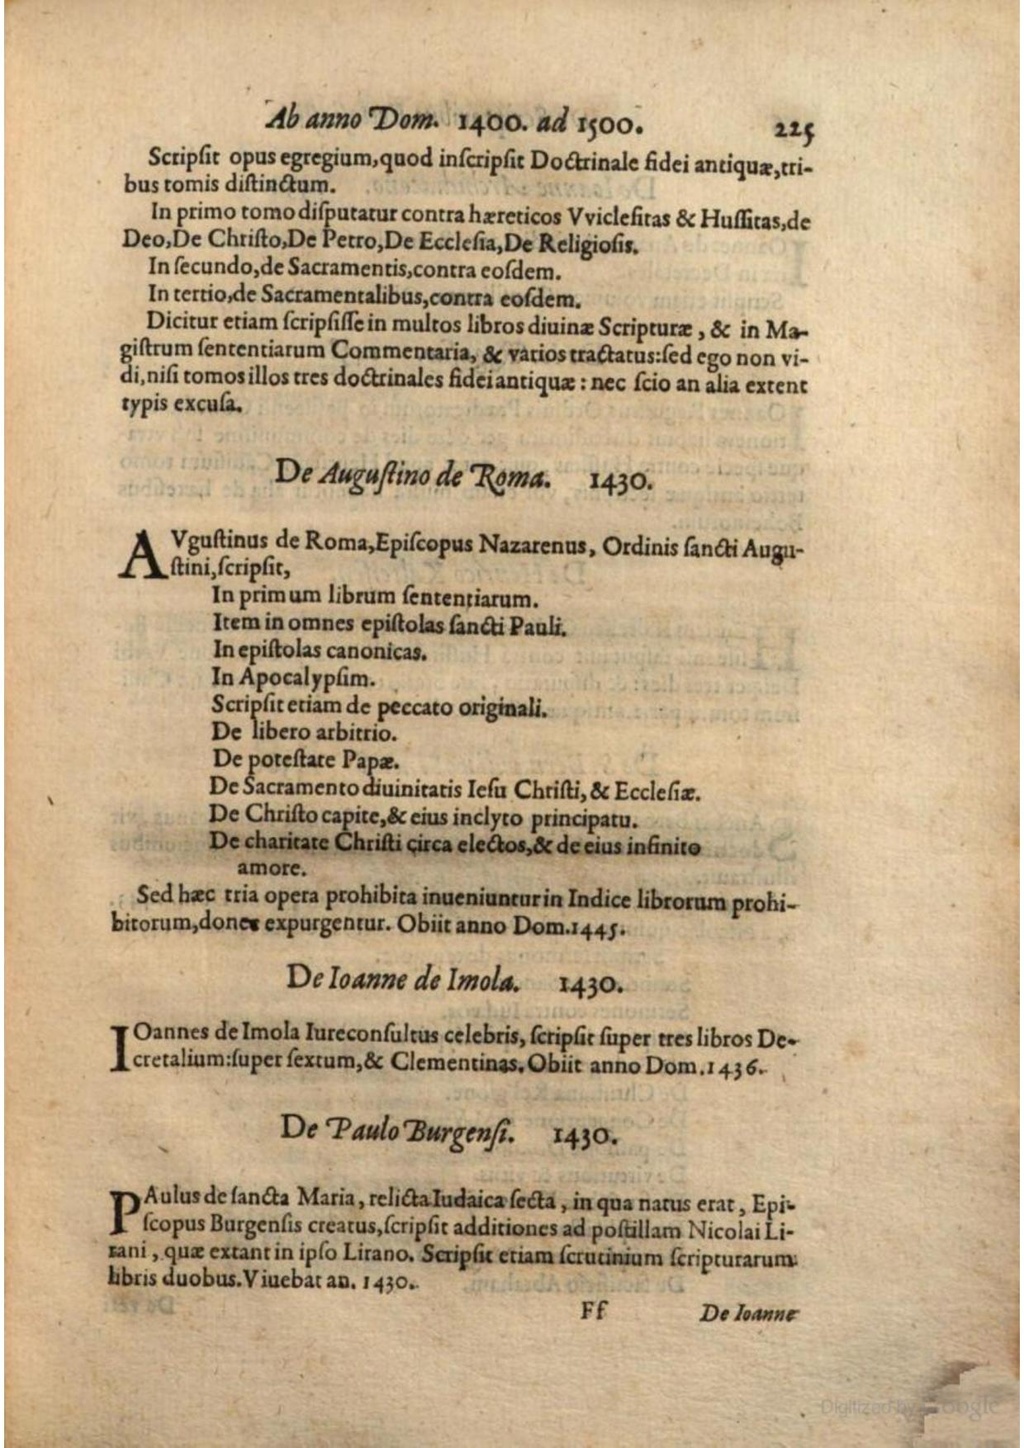 Ab anno Dom. 1400. ad 1500. 225
Scripſit opus egregium,quod inſcripſit Doctrinale fidei antiquæ,tri-
bus tomis diſtinctum.
In primo tomo diſputatur contra hæreticos Vvicleſitas & Huſſitas,de
Deo,De Chriſto,De Petro,De Eccleſia,De Religioſis.
In ſecundo,de Sacramentis,contra eoſdem.
In tertio,de Sacramentalibus,contra eoſdem.
Dicitur etiam ſcripſiſſe in multos libros diuinæ Scripturæ, & in Ma-
giſtrum ſententiarum Commentaria, & varios tractatus:ſed ego non vi-
di,niſi tomos illos tres doctrinales fidei antiquæ : nec ſcio an alia extent
typis excuſa.
De Auguſtino de Roma. 1430.
AVguſtinus de Roma,Epiſcopus Nazarenus, Ordinis ſancti Augu-
ſtini,ſcripſit,
In primum librum ſententiarum.
Item in omnes epiſtolas ſancti Pauli.
In epiſtolas canonicas.
In Apocalypſim.
Scripſit etiam de peccato originali.
De libero arbitrio.
De poteſtate Papæ.
De Sacramento diuinitatis Ieſu Chriſti, & Eccleſiæ.
De Chriſto capite,& eius inclyto principatu.
De charitate Chriſti circa electos,& de eius infinito
amore.
Sed hæc tria opera prohibita inueniuntur in Indice librorum prohi-
bitorum,donec expurgentur. Obiit anno Dom.1445.
De Ioanne de Imola. 1430.
IOannes de Imola Iureconſultus celebris, ſcripſit ſuper tres libros De-
cretalium:ſuper ſextum,& Clementinas. Obiit anno Dom.1436.
De Paulo Burgenſi. 1430.
PAulus de ſancta Maria, relicta Iudaica ſecta, in qua natus erat, Epi-
ſcopus Burgenſis creatus,ſcripſit additiones ad poſtillam Nicolai Li-
rani, quæ extant in ipſo Lirano. Scripſit etiam ſcrutinium ſcripturarum
libris duobus.Viuebat an. 1430.
Ff De Ioanne
Digitized by Google